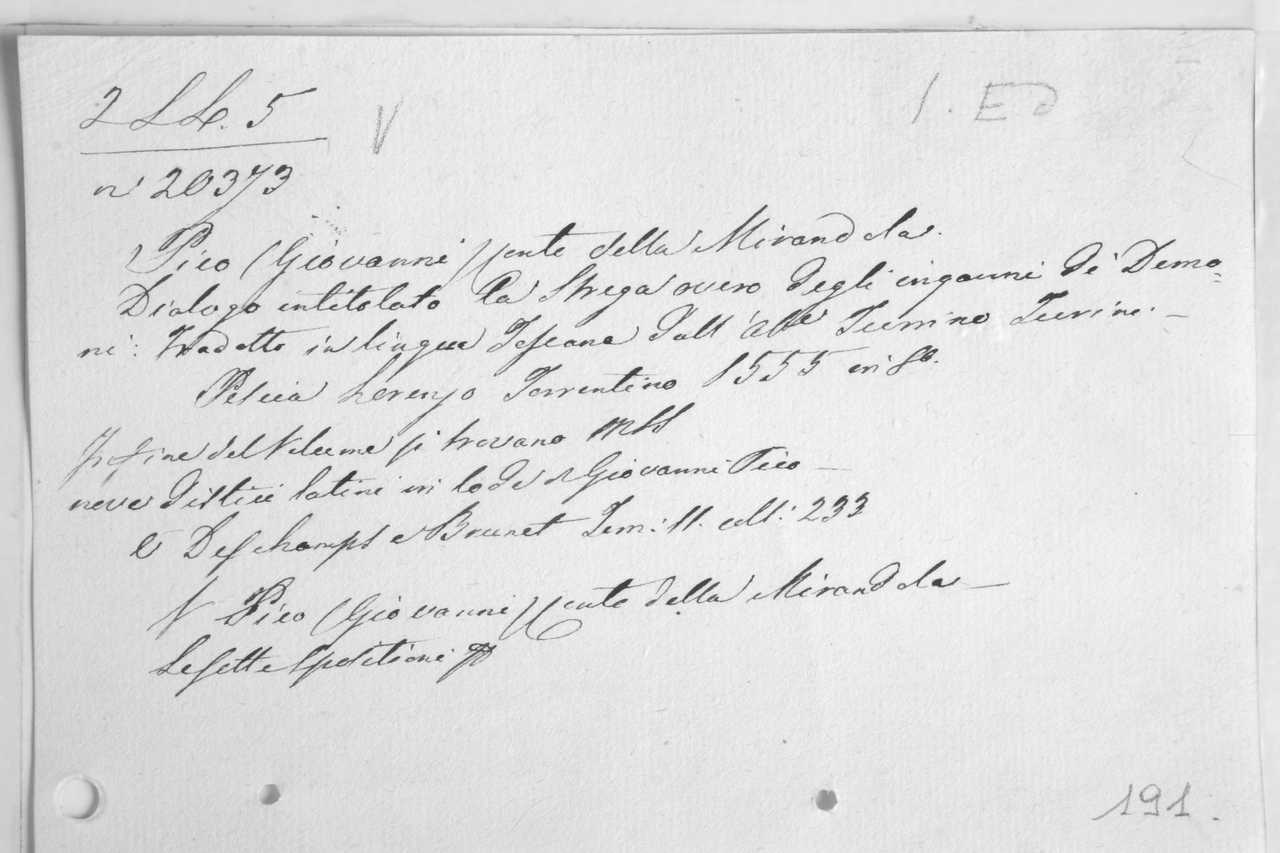 2 LL. 5 V 1. ED
n. 20373
Pico (Giovanni) Conte della Mirandola.
Dialogo intitolato la Strega overo degli inganni de' Demo=
ni: Tradotto in lingua Toscana dall' Abe Turrino Turrini. —
Pescia Lorenzo Torrentino 1555 in 8o.
In fine del Volume si trovano mss
nove distici latini in lode di Giovanni Pico —
Deschamps e Brunet Tom: II. coll: 233
V Pico (Giovanni) Conte della Mirandola —
Le sette Spositioni
191.